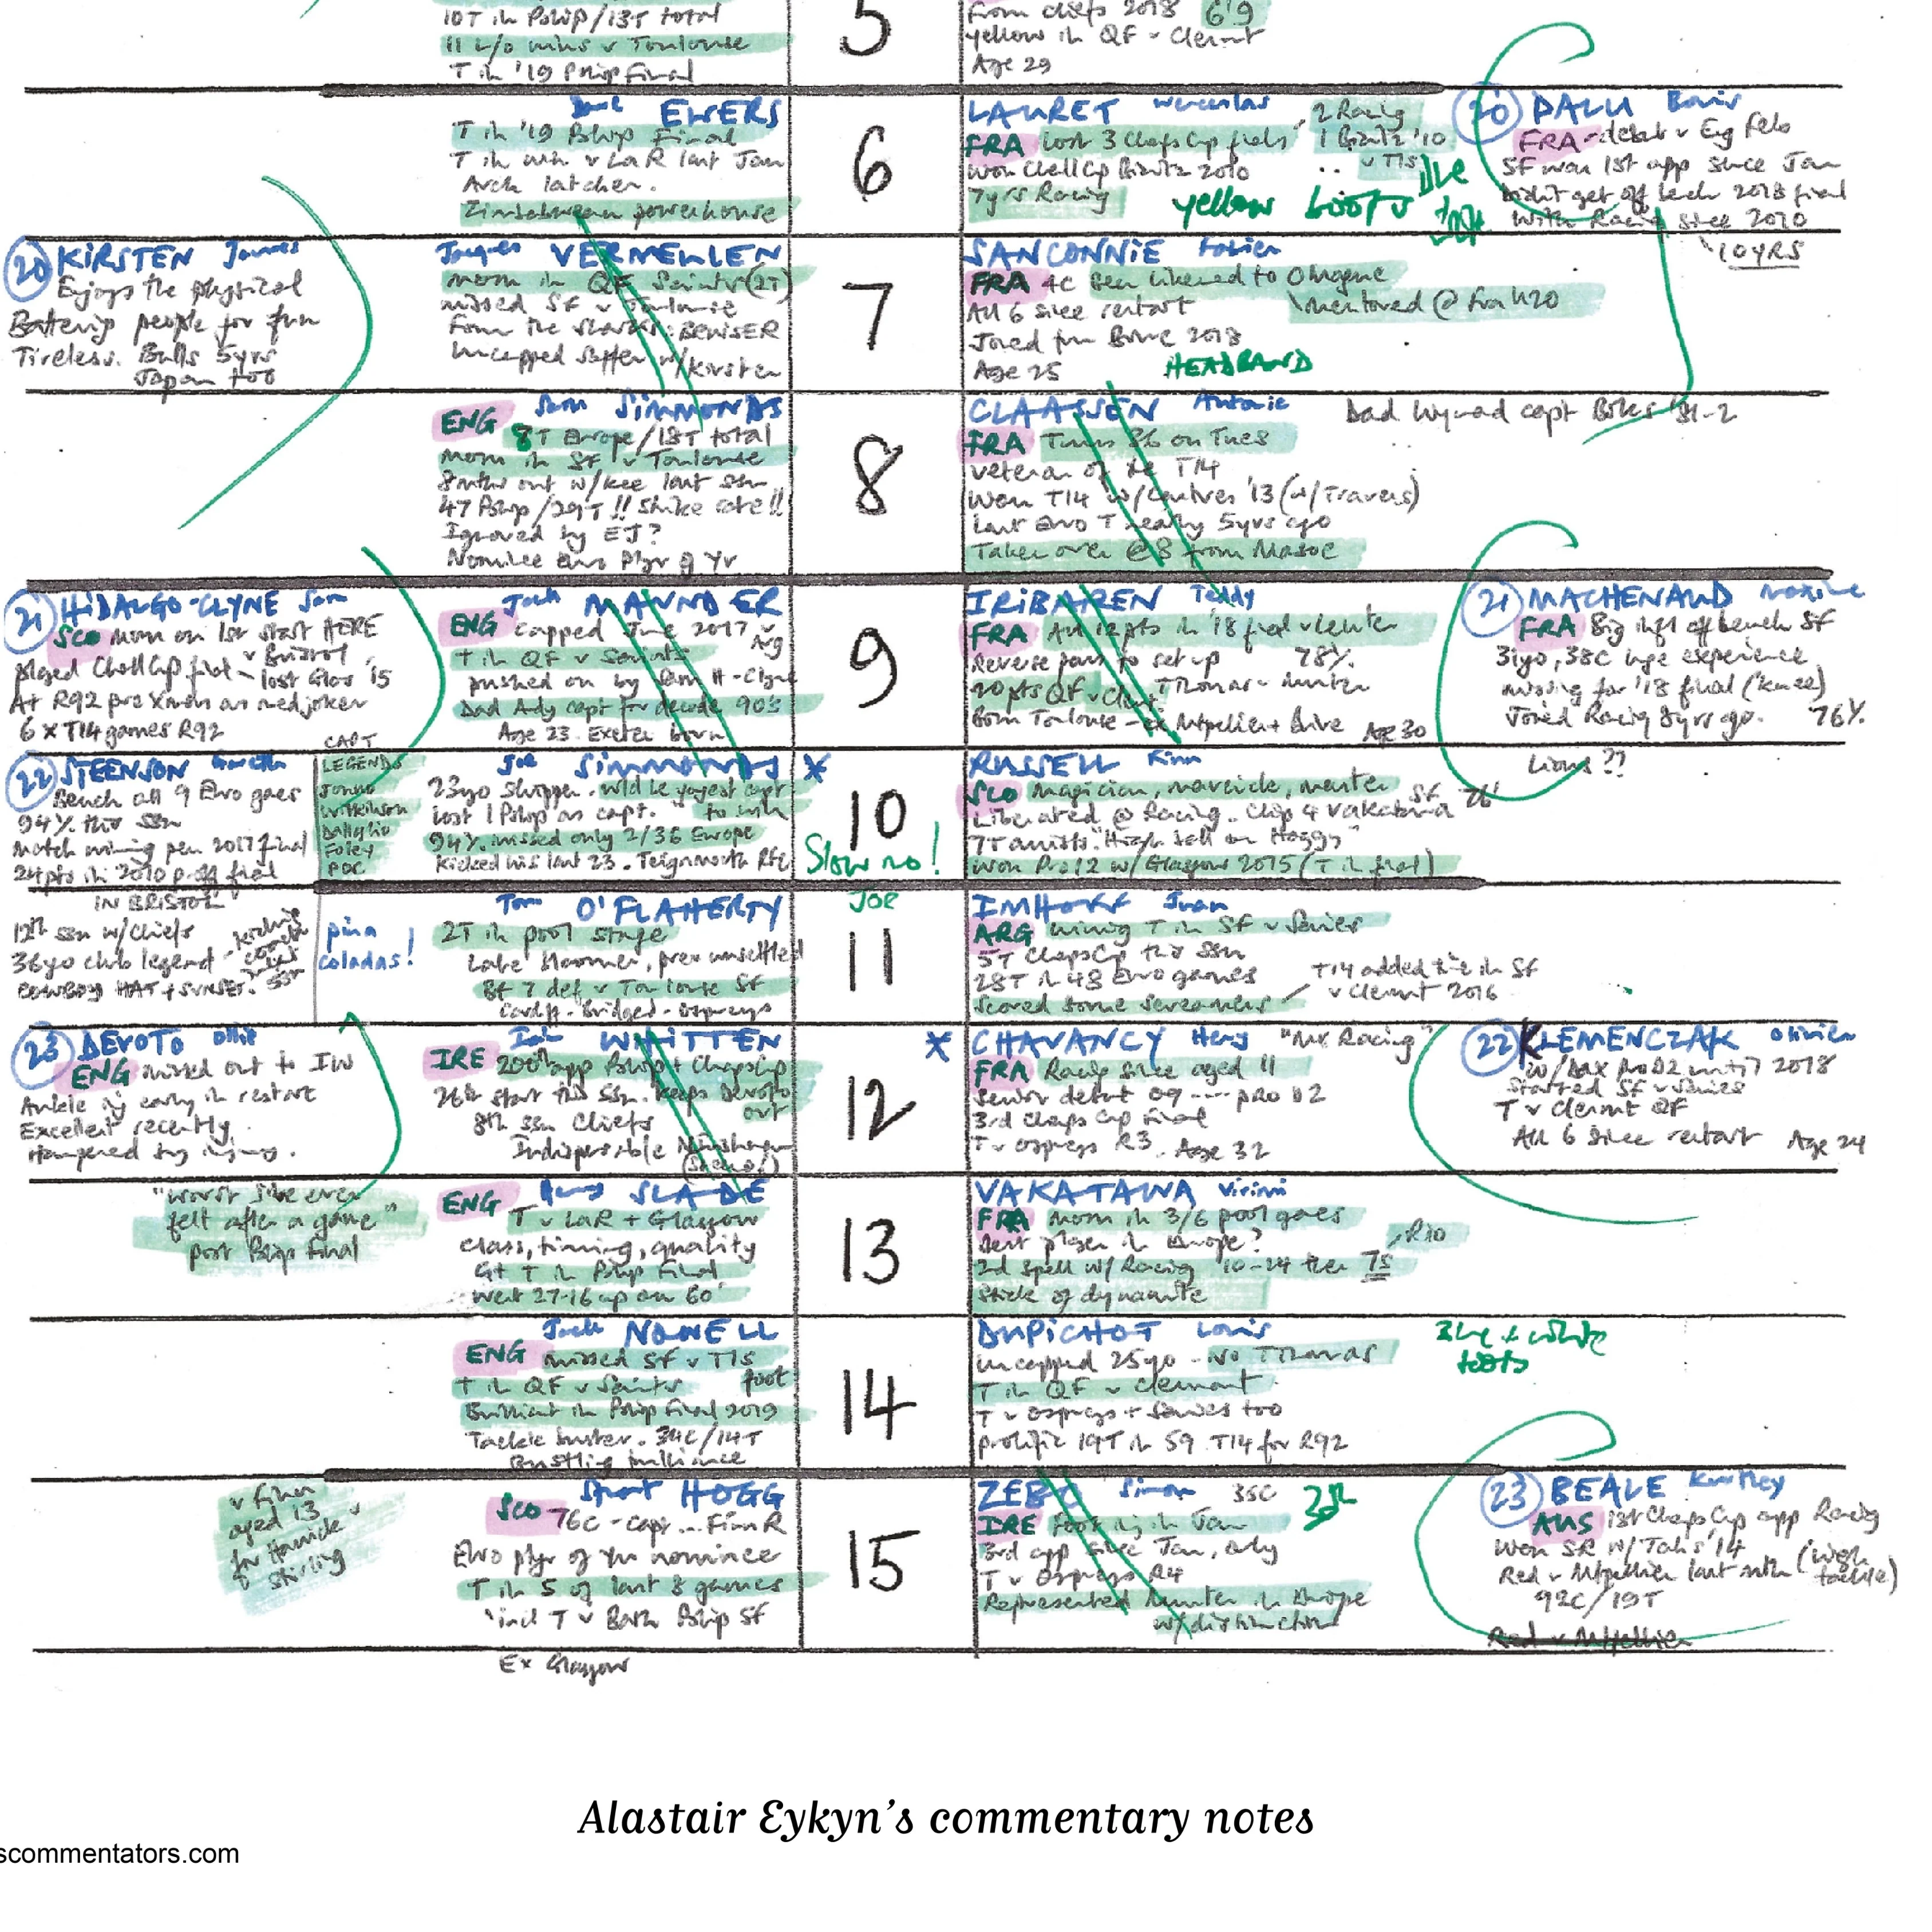 10T in P'ship/13T total
11 L/O wins v Toulouse
T in '19 P'ship Final
5
From Chiefs 2018 6'9
yellow in QF v Clermt
Age 29
Dave EWERS
T in '19 P'ship Final
T in win v LaR last Jan
Arch latcher.
Zimbabwean powerhouse
6
LAURET Wenceslas
FRA lost 3 Champs Cup finals
2 Racing
1 Biarritz '10
v Tls
Won Chall Cp Biarritz 2010
7yrs Racing
yellow boots
20 PALU Boris
FRA - debut v Eng Feb
SF was 1st app since Jan
Didn't get off bench 2018 final
With Racing since 2010
10YRS
20 KIRSTEN Jannes
Enjoys the physical
Battering people for fun
Tireless. Bulls 5yrs
Japan too
Jacques VERMEULEN
mom in QF Saints (2T)
missed SF v Toulouse
From the Sharks: BRUISER
Uncapped Saffer w/Kirsten
7
SANCONNIE Fabien
FRA 4C Been likened to Ollivon
mentored @ Fra U20
All 6 since restart
Joined from Brive 2018
Age 25
HEADBAND
ENG Sam SIMMONDS
8T Europe/18T total
mom in SF v Toulouse
8mths out w/knee last ssn
47 P'ship/29T!! Strike rate!!
Ignored by EJ?
Nominee Euro Plyr of Yr
8
CLAASSEN Antonie
Dad Wynand capt Boks '81-2
FRA Turns 36 on Tues
Veteran of the T14
Won T14 w/Castres '13 (w/Travers)
Last Euro T nearly 5yrs ago
Takes over @ 8 from Masoe
21 HIDALGO-CLYNE Sam
SCO mom on 1st start HERE
v Bristol
played Chall Cup final - lost Glos '15
At R92 pre Xmas as medjoker
6 x T14 games R92
Jack MAUNDER
ENG capped June 2017 v Arg
T in QF v Saints
pushed on by Sam H-Clyne
Dad Ady capt for decade 90's
Age 23. Exeter born
9
IRIBAREN Teddy
FRA All 12pts in '18 final v Leinster
Reverse pass to set up 78%
20pts QF v Clmt
Born Toulouse - ex Mtpellier + Brive Age 30
21 MACHENAUD Maxime
FRA Big infl off bench SF
31yo, 38C huge experience
missing for '18 final (knee)
Joined Racing 8yrs ago. 76%
22 STEENSON Gareth
Bench all 9 Euro games
94% this ssn
Match winning pen 2017 final
24pts in 2010 p-off final
IN BRISTOL
12th ssn w/Chiefs
36yo club legend
COWBOY HAT + SUNSET.
CAPT
LEGENDS
Jonno
Wilkinson
Dallaglio
Foley
POC
Joe SIMMONDS
23yo Skipper. Wld be yngest capt to win
lost 1 P'ship as capt.
94%. missed only 2/36 Europe
Kicked his last 23. Teignmouth RFC
10
Slow no!
JOE
RUSSELL Finn
Lions??
SCO Magician, maverick,
Liberated @ Racing. Chip 4 Vakatawa SF 76'
7T assists. "High ball on Hoggy"
Won Pro12 w/ Glasgow 2015 (T in final)
pina
coladas!
Tom O'FLAHERTY
2T in pool stage
Late bloomer, prev unsettled
Bt 7 def v Toulouse SF
Cardiff - Bridgend - Ospreys
11
IMHOFF Juan
ARG winning T in SF v Saries
5T Champs Cp this ssn
28T in 48 Euro games
Scored some screamers
T14 added time in SF
v Clermt 2016
23 DEVOTO Ollie
ENG missed out to IW
Ankle inj early in restart
Excellent recently.
Hampered by injury.
Ian WHITTEN
IRE 200th app P'ship + Champs Cup
26th start this ssn. Keeps Devoto out
8th ssn Chiefs
Indispensable
12
CHAVANCY Henry "Mr Racing"
FRA Racing since aged 11
Senior debut 09 --- PRO D2
3rd Champs Cup Final
T v Ospreys R3. Age 32
22 KLEMENCZAK Olivier
w/Dax Pro D2 until 2018
Started SF v Saries
T v Clermt QF
All 6 since restart Age 24
"Worst I've ever
felt after a game"
post P'ship Final
ENG Henry SLADE
T v LaR + Glasgow
Class, timing, quality
Gt T in P'ship Final
Went 27-16 up on 60'
13
VAKATAWA Virimi
FRA mom in 3/6 pool games
Best player in Europe?
2nd spell w/ Racing '10-14 then 7s
Rio
Stick of dynamite
Jack NOWELL
ENG missed SF v Tls
foot
T in QF v Saints
Brilliant in P'ship Final 2019
Tackle buster. 34C/14T
Bustling brilliance
14
DUPICHOT Louis
Uncapped 25yo - No Thomas
T in QF v Clermont
T v Ospreys + Saries too
prolific 19T in 59 T14 for R92
Blue + white
boots
v Finn
aged 13
for Hawick v
Stirling
Stuart HOGG
SCO 76C - capt... Finn R
Euro plyr of yr nominee
T in 5 of last 8 games
incl T v Bath P'ship SF
Ex Glasgow
15
ZEBO Simon 35C
IRE foot inj in Jan
3rd app since Jan, only
T v Ospreys R4
Represented Munster in Europe
w/distinction
23 BEALE Kurtley
AUS 1st Champs Cup app Racing
Won SR w/Tahs '14
Red v Mtpellier last mth (high tackle)
92C/19T
Red v Mtpellier
Alastair Eykyn's commentary notes
scommentators.com